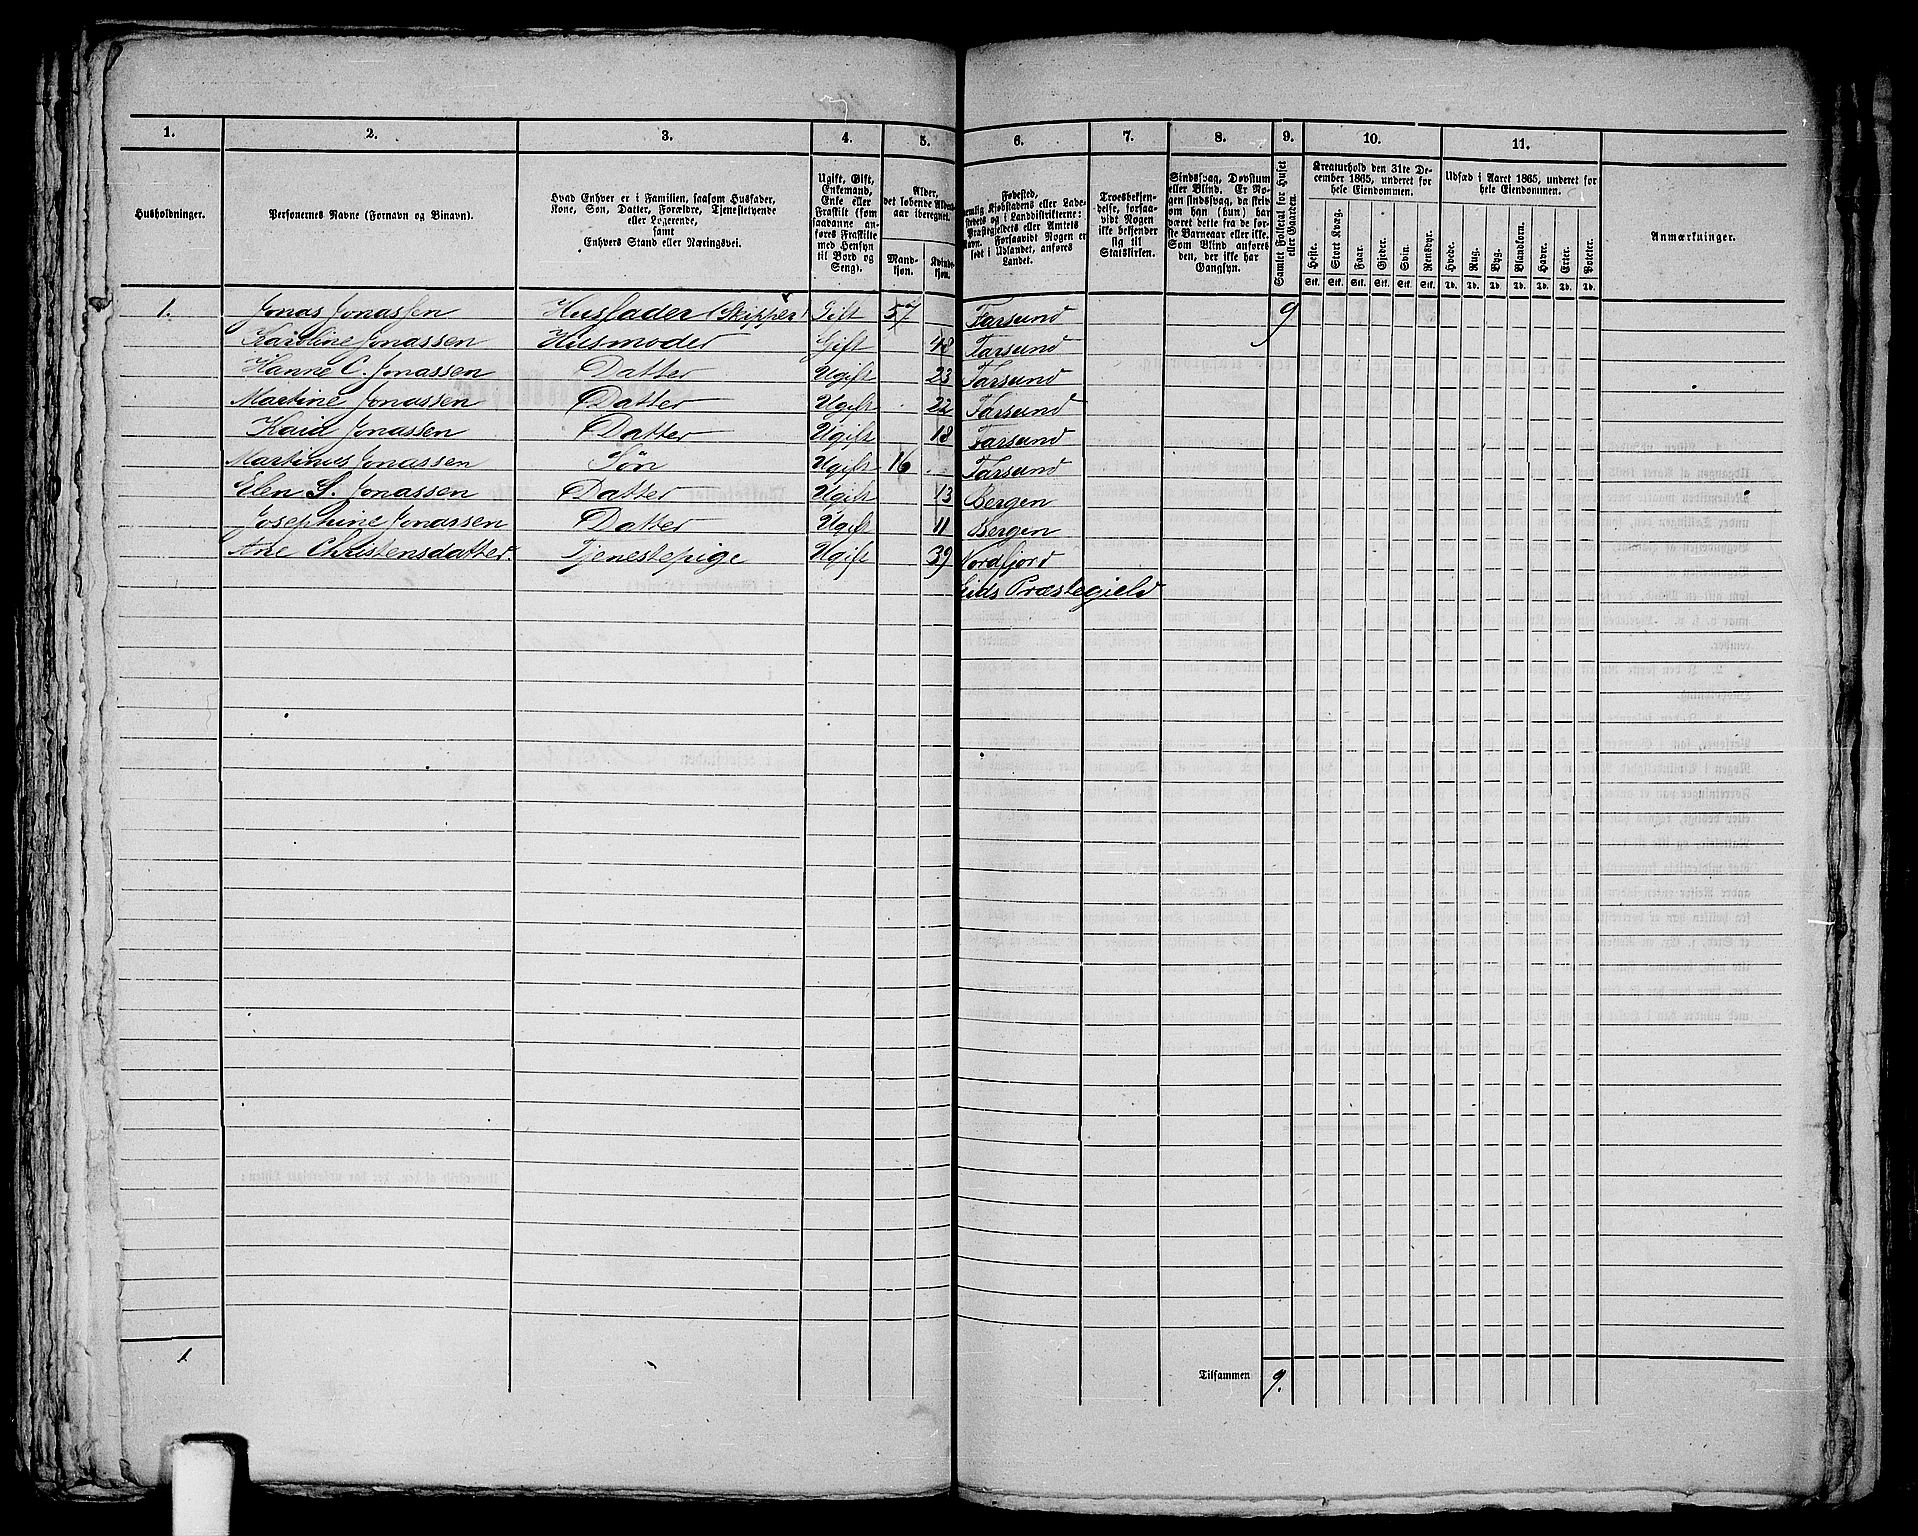 1. 2. 3. 4. 5. 6. 7. 8. 9. 10. 11.
Husholdninger.
Personernes Navne (Fornavn og Binavn).
Hvad Enhver er i Familien, saasom Husfader,
Kone, Søn, Datter, Forældre, Tjenestetyende
eller Logerende,
samt
Enhvers Stand eller Næringsvei.
Ugift, Gift,
Enkemand,
Enke eller
Fraskilt (som
saadanne an-
føres Fraskilte
med Hensyn
til Bord og
Seng).
Alder,
det løbende Alders-
aar iberegnet.
Mand-
kjøn.
Kvinde-
kjøn.
Fødested,
nemlig Kjøbstadens eller Lade-
stedets og i Landdistrikterne:
Præstegjeldets eller Amtets
Navn. Forsaavidt Nogen er
født i Udlandet, anføres
Landet.
Troesbekjen-
delse, forsaa-
vidt Nogen
ikke bekjender
sig til
Statskirken.
Sindssvag, Døvstum
eller Blind. Er No-
gen sindssvag, da skriv
om han (hun) har
været dette fra de før-
ste Barneaar eller ikke.
Som Blind anføres
den, der ikke har
Gangsyn.
Samlet Folketal for Huset
eller Gaarden.
Kreaturhold den 31te De-
cember 1865, underet for
hele Eiendommen.
Heste. Stort Kvæg. Faar. Gjeder. Svin. Rensdyr.
Stk. Stk. Stk. Stk. Stk. Stk.
Udsæd i Aaret 1865, underet for
hele Eiendommen.
Hvede. Rug. Byg. Blandkorn. Havre. Erter. Poteter.
Td. Td. Td. Td. Td. Td. Td.
Anmærkninger.
1. Jonas Jonassen Husfader (Skipper) Gift 57 Farsund 9
Karoline Jonassen Husmoder Gift 48 Farsund
Hanne C. Jonassen Datter Ugift 23 Farsund
Martine Jonassen Datter Ugift 22 Farsund
Kaia Jonassen Datter Ugift 18 Farsund
Martinius Jonassen Søn Ugift 16 Farsund
Elen S. Jonassen Datter Ugift 13 Bergen
Josephine Jonassen Datter Ugift 11 Bergen
Ane Christensdatter. Tjenestepige Ugift 39 Nordfjord
Eids Præstegield
1 Tilsammen 9.